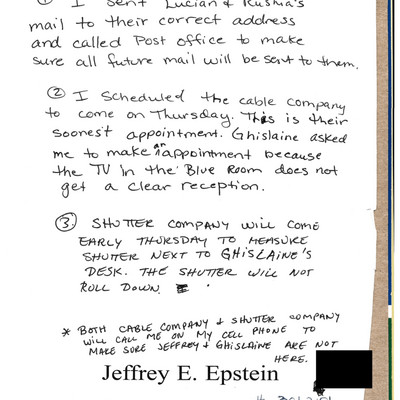 ① I sent Lucian & Kushia's
mail to their correct address
and called Post office to make
sure all future mail will be sent to them.
② I scheduled the cable company
to come on Thursday. This is their
soonest appointment. Ghislaine asked
me to make an appointment because
the TV in the Blue Room does not
get a clear reception.
③ SHUTTER COMPANY WILL COME
EARLY THURSDAY TO MEASURE
SHUTTER NEXT TO GHISLAINE'S
DESK. THE SHUTTER WILL NOT
ROLL DOWN.
* BOTH CABLE COMPANY & SHUTTER COMPANY
WILL CALL ME ON MY CELL PHONE TO
MAKE SURE JEFFREY & GHISLAINE ARE NOT
HERE.
Jeffrey E. Epstein